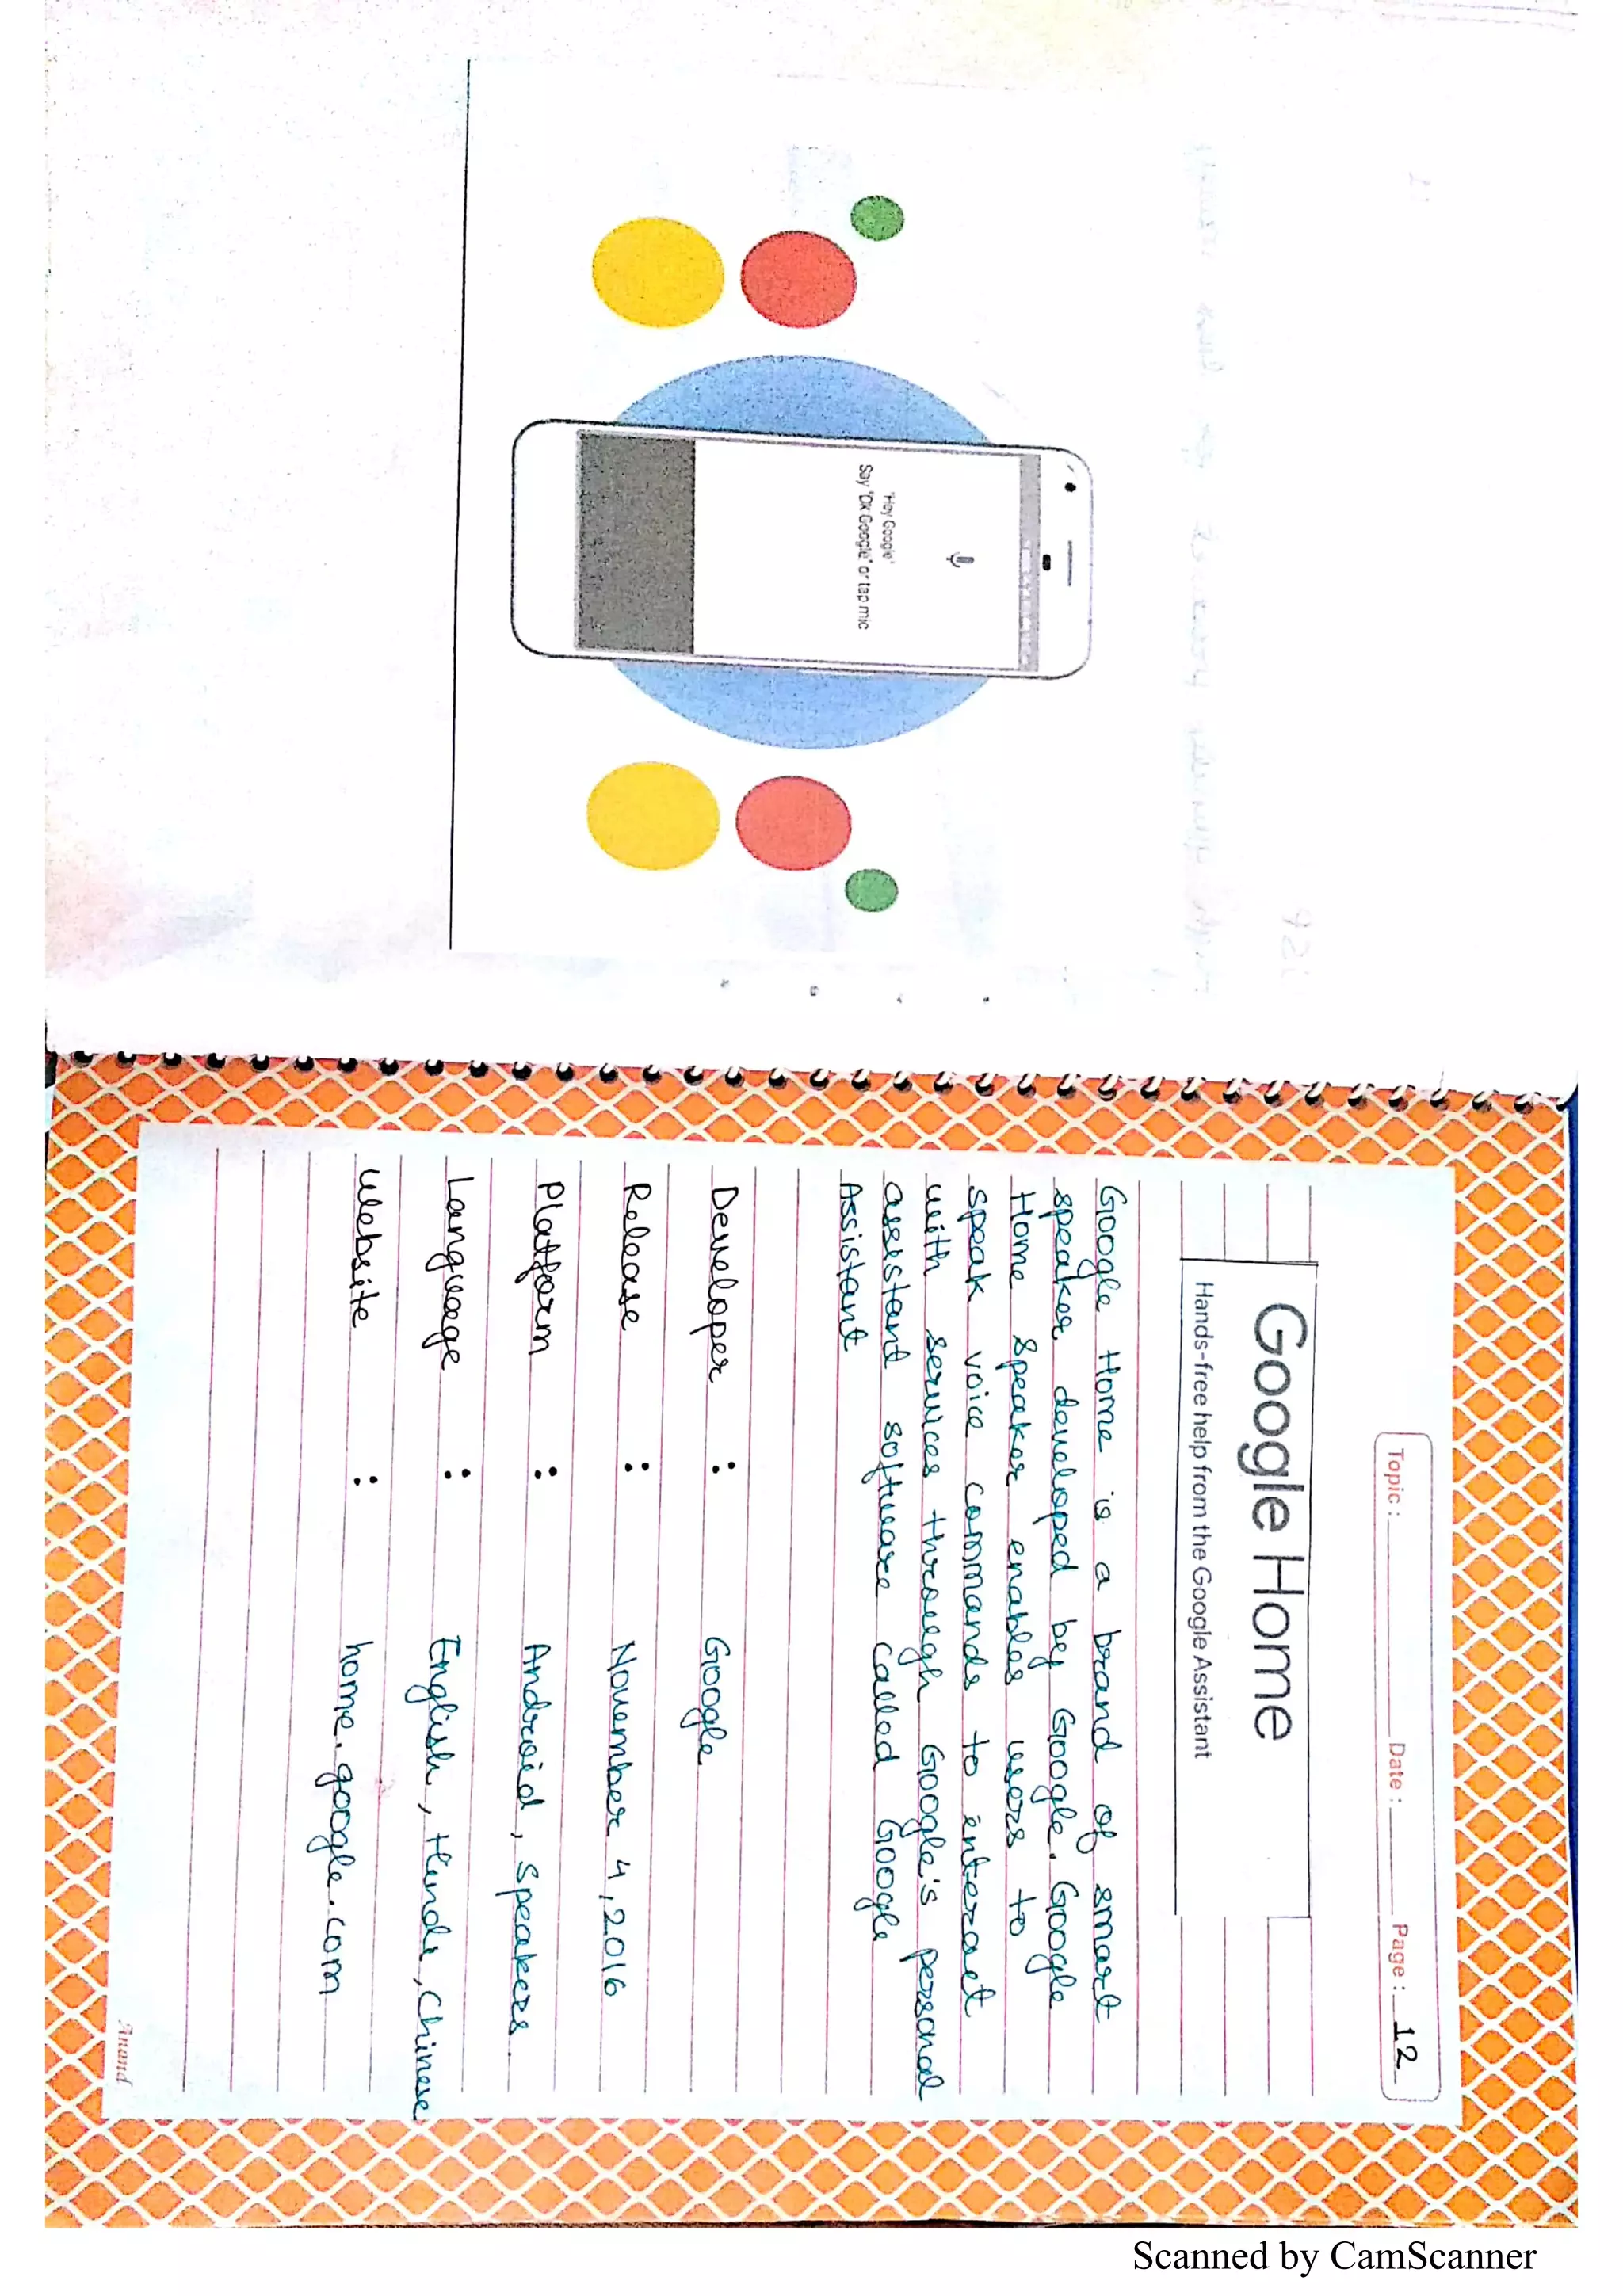 "Hey Google"
Say "OK Google" or tap mic
Topic : Date : Page : 12
Google Home
Hands-free help from the Google Assistant
Google Home is a brand of smart
speaker developed by Google. Google
Home speaker enables users to
speak voice commands to interact
with services through Google's personal
assistant software called Google
Assistant
Developer : Google
Release : November 4, 2016
Platform : Android, Speakers.
Language : English, Hindi, Chinese
Website : home.google.com
Anand
Scanned by CamScanner